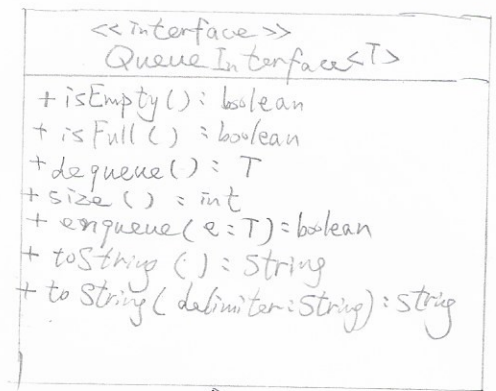 <<interface>>
QueueInterface<T>
+ isEmpty(): boolean
+ isFull(): boolean
+ dequeue(): T
+ size(): int
+ enqueue(e:T): boolean
+ toString(): String
+ toString(delimiter: String): String